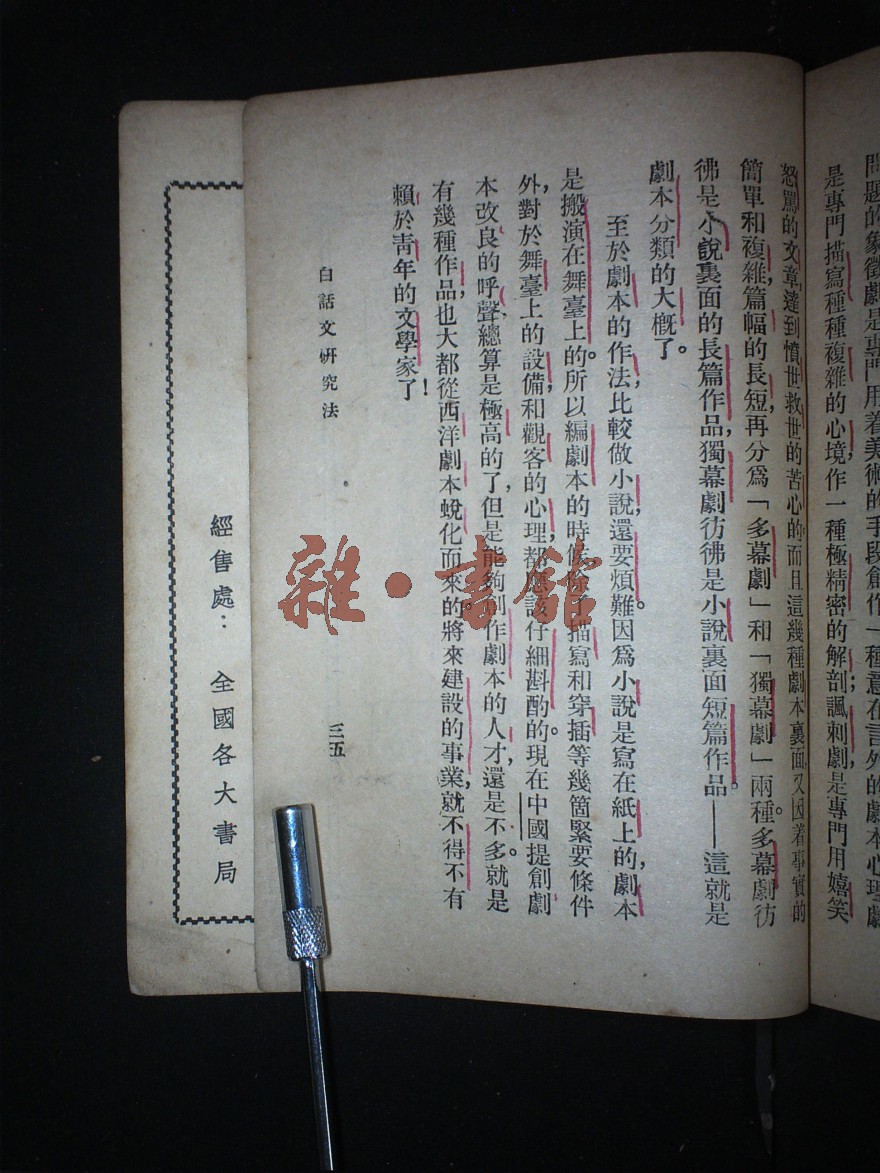 問題的象徵劇是專門用着美術的手段創作一種意在言外的劇本心理劇
是專門描寫種種複雜的心境，作一種極精密的解剖；諷刺劇，是專門用嬉笑
怒罵的文章，達到憤世救世的苦心的。而且這幾種劇本裏面，又因着事實的
簡單和複雜，篇幅的長短，再分爲「多幕劇」和「獨幕劇」兩種。多幕劇彷
彿是小說裏面的長篇作品，獨幕劇彷彿是小說裏面短篇作品。——這就是
劇本分類的大概了。
至於劇本的作法，比較做小說，還要煩難。因爲小說是寫在紙上的，劇本
是搬演在舞臺上的。所以編劇本的時候，除了描寫和穿插等幾箇緊要條件
外，對於舞臺上的設備和觀客的心理，都應該仔細斟酌的。現在中國提創劇
本改良的呼聲，總算是極高的了，但是能夠創作劇本的人才，還是不多。就是
有幾種作品，也大都從西洋劇本蛻化而來的。將來建設的事業，就不得不有
賴於青年的文學家了！
白話文研究法
三五
經售處：　全國各大書局
雜·書館